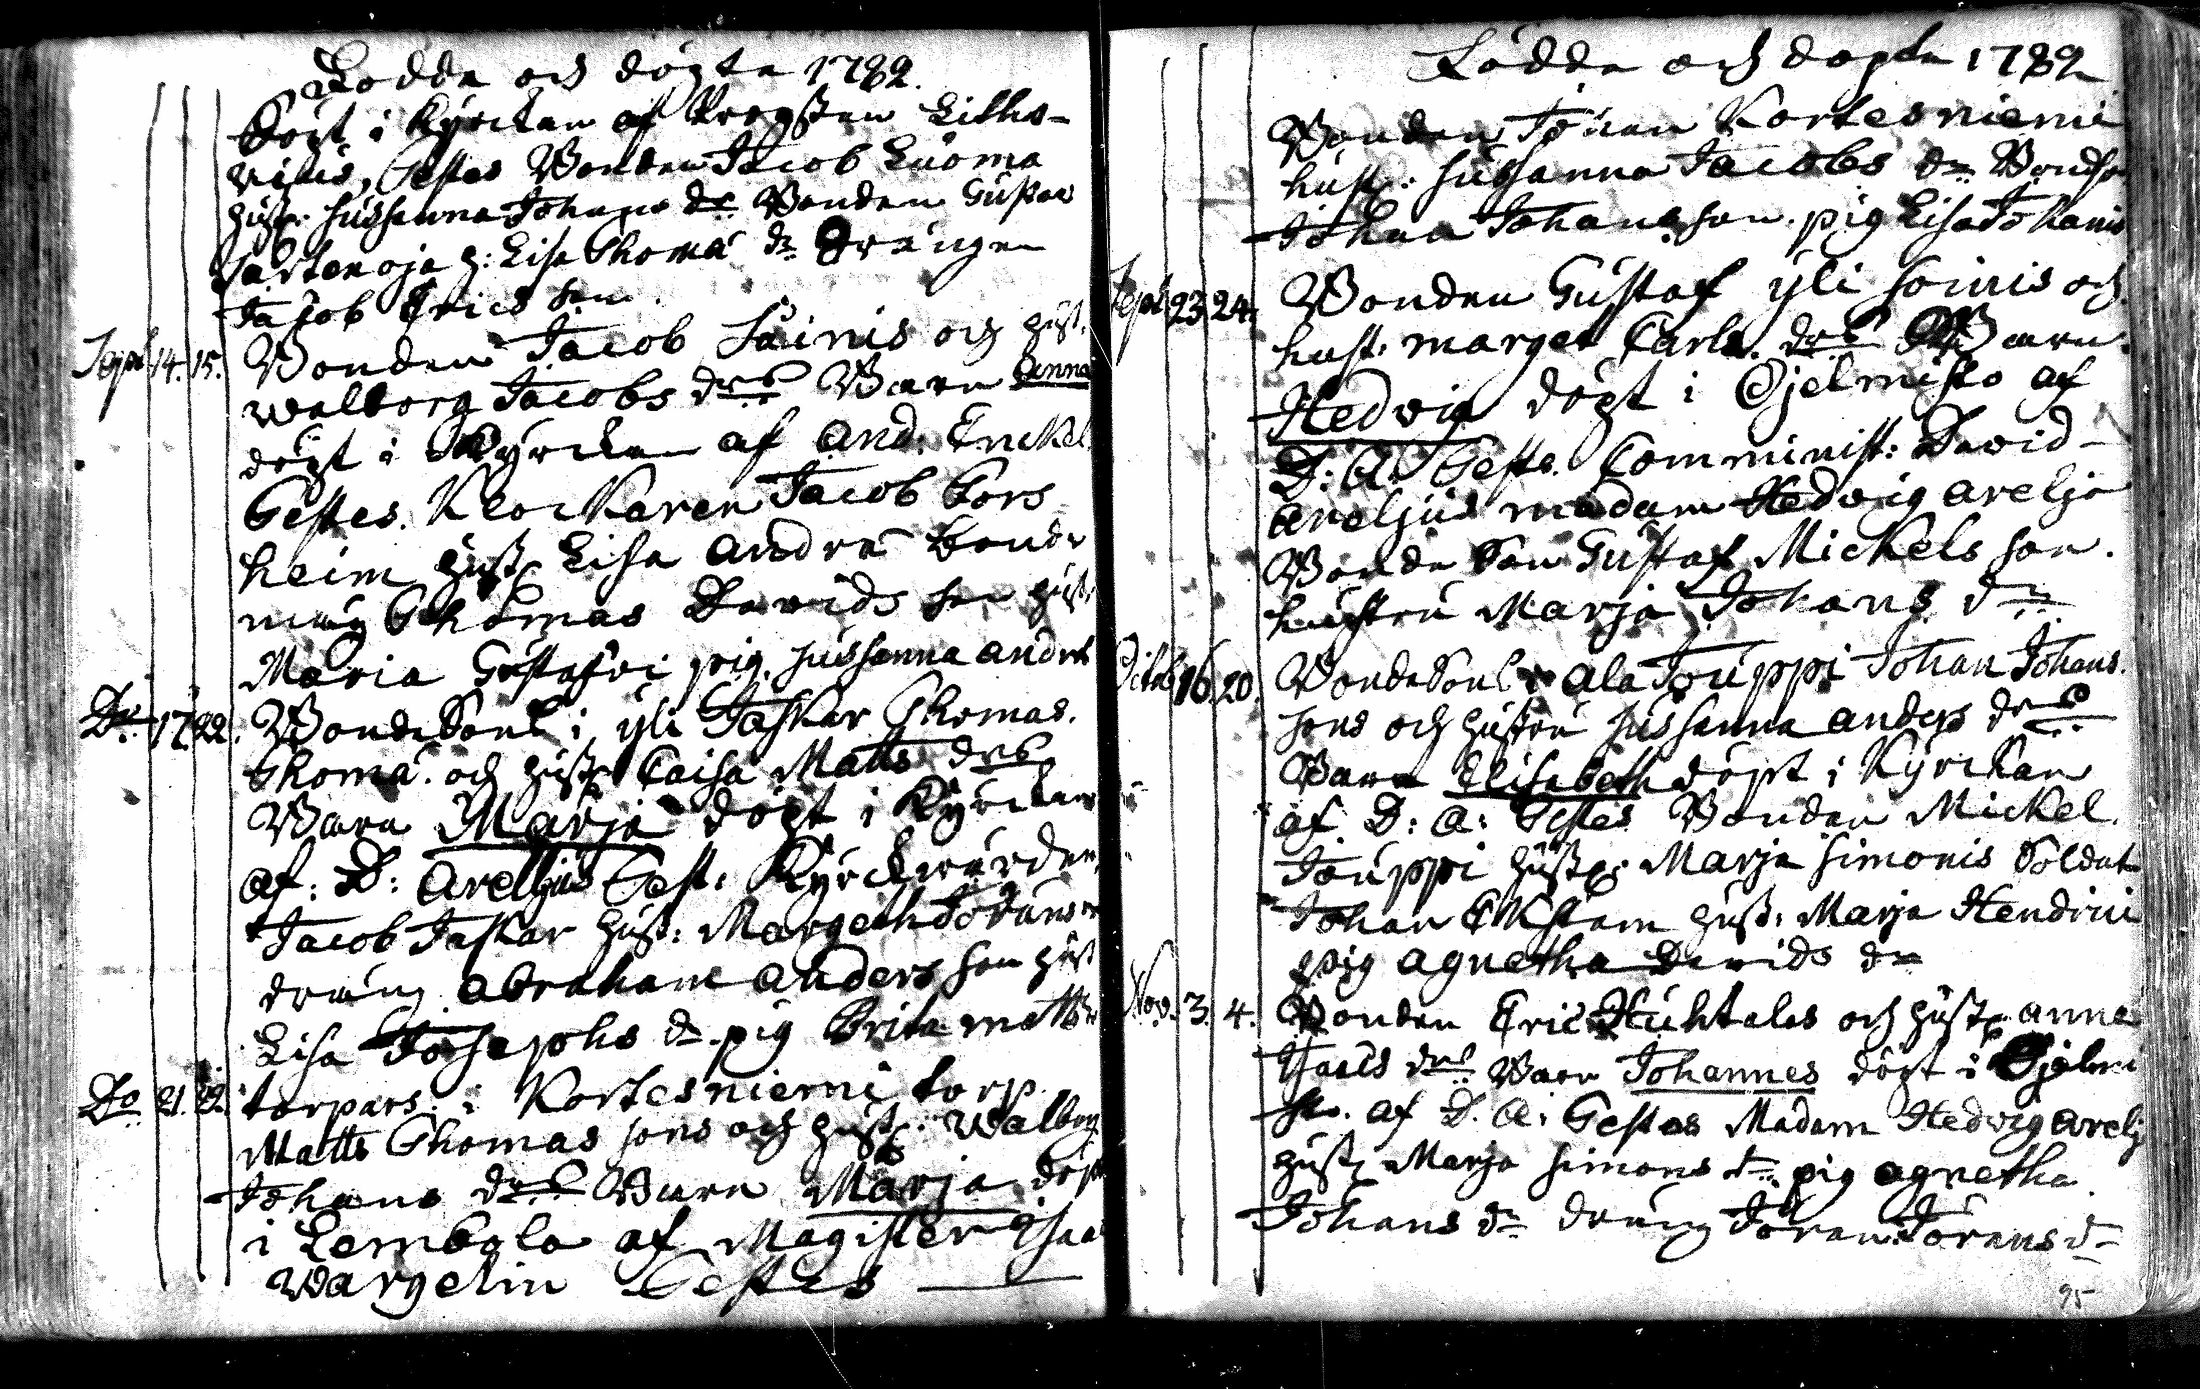 Födda och döpta 1782.
döpt i Kyrckan af Prosten Litho-
vius, Testes Bonden Jacob Luoma
hust: Sussanna Johans dr Bonden Gustav
h: Lisa Thomæ dr Drängen
Jacob Erics son.
Sept 14. 15. Bonden Jacob Soinis och hust.
Walborg Jacobs drs Barn Anna
döpt i Kyrckan af And: Enckel
Testes. Klockaren Jacob Fors
heim hust Lisa Andræ bonde
måg Thomas Davids son hust.
Maria Gustafvi pig. Sussanna Andræ
Do 17. 22. BondeSonl i yli Jaskar Thomas.
Thomæ. och hust Caisa Matts drs
Barn Marja döpt i Kyrckan
af: D: Areljius Test: Kyrckvärden
Jacob Jaskar hust: Margeth Jörans
dräng Abraham Anders son hust
Lisa Josephs dr pig Brita Matts
Do 21. 22. torpars. i Kortesniemi torp.
Matts Thomas sons och hust: Walborg
Johans drs Barn Marja döpt
i Lembola af Magister Isaac
Wargelin Testes
Födda och döpta 1782
Bonden Johan Kortesniemi
hust: Sussanna Jacobs dr Bondson
Johan Johans son. pig Lisa Johans
Sept 23 24. Bonden Gustaf yli Soinis och
hust. marget Carls. drs Barn.
Hedvig döpt i Gjelmisto af
D: A: Teste. Comminist: David
Areljius madam Hedvig Arelja
Bonde Son Gustaf Mickels son.
hustru Marja Johans dr
Octob 16. 20. BondeSonl i ala Jouppi Johan Johans.
sons och hustru Sussanna Anders drs
Barn Elisabeth döpt i Kyrckan
af D: A: Testes Bonden Mickel.
Jouppi hust: Marja Simonis Soldat
Johan Ekstam hust: Marja Hendrici
pig Agnetha Davids dr
Nov. 3. 4. Bonden Eric Huhtalas och hust: anna
Isacs drs Barn Johannes döpt i Gjelmi
sto. af D. A: Testes Madam Hedvig Arelj
hust Marja Simons dr pig Agnetha.
Johans dr dräng Jöran Jörans
95